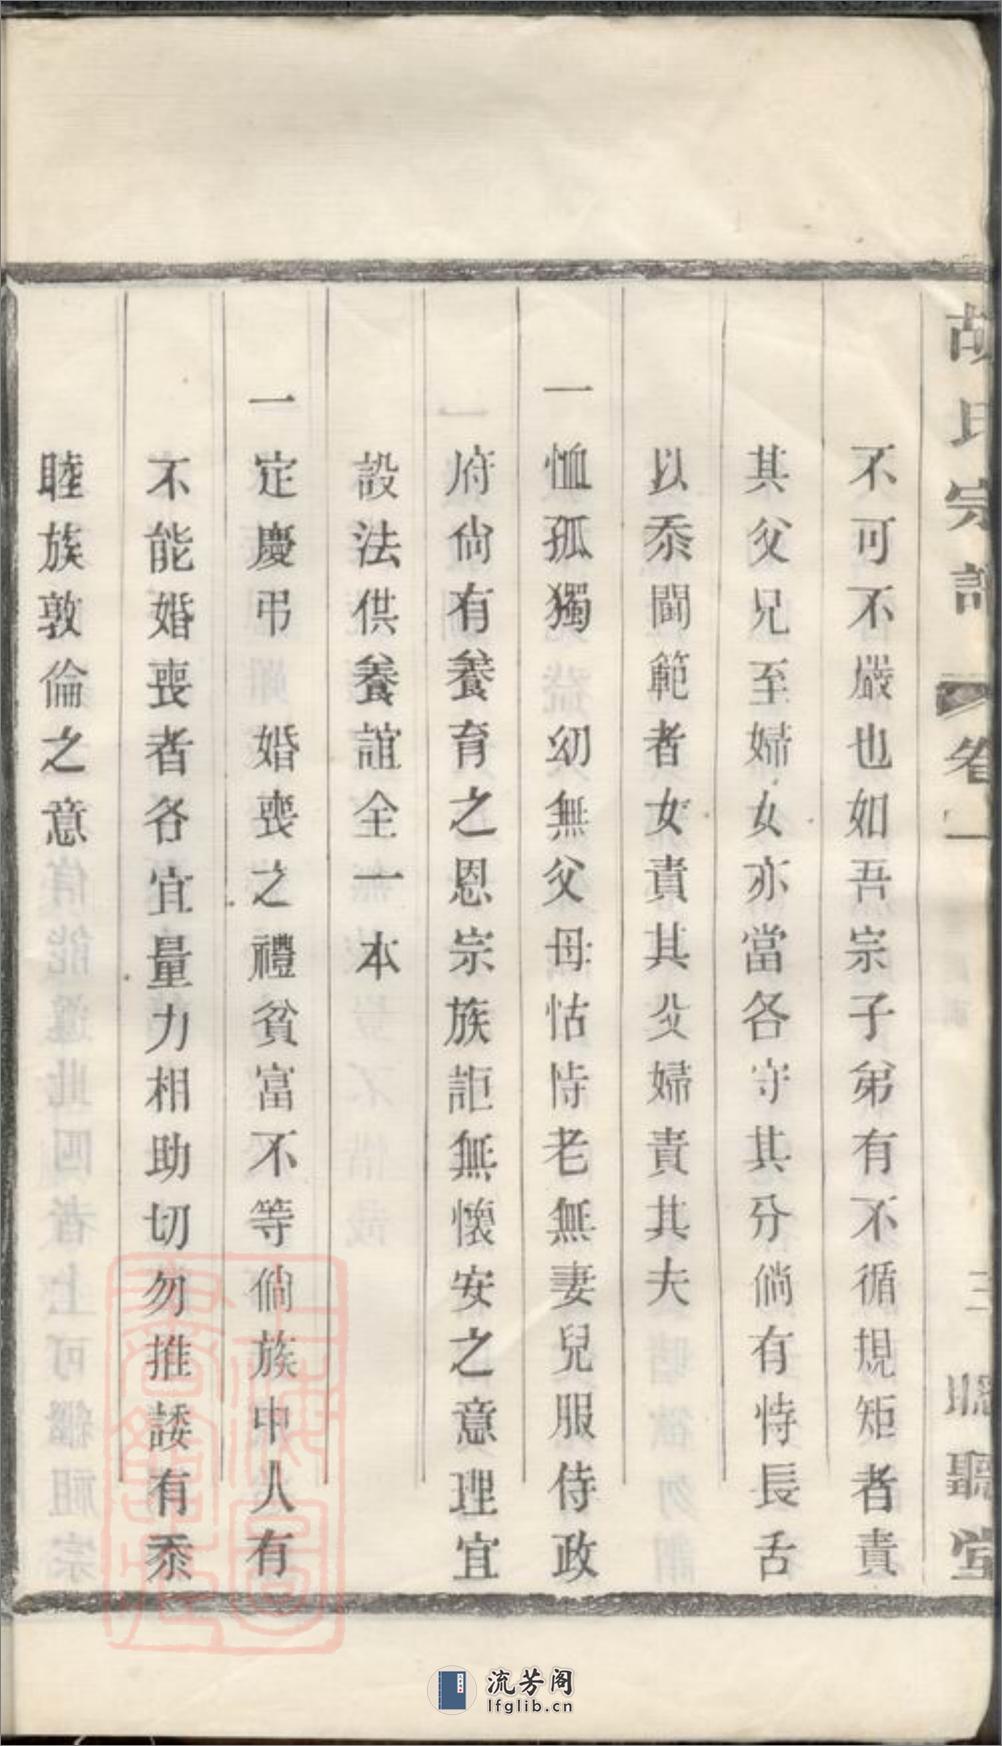 胡氏宗譜 卷一 三 聰聽堂
不可不嚴也如吾宗子弟有不循規矩者責
其父兄至婦女亦當各守其分倘有恃長舌
以忝閫範者女責其父婦責其夫
一恤孤獨 幼無父母怙恃老無妻兒服侍政
府尙有養育之恩宗族詎無懷安之意理宜
設法供養誼全一本
一定慶弔 婚喪之禮貧富不等倘族中人有
不能婚喪者各宜量力相助切勿推諉有忝
睦族敦倫之意
流芳阁
lfglib.cn